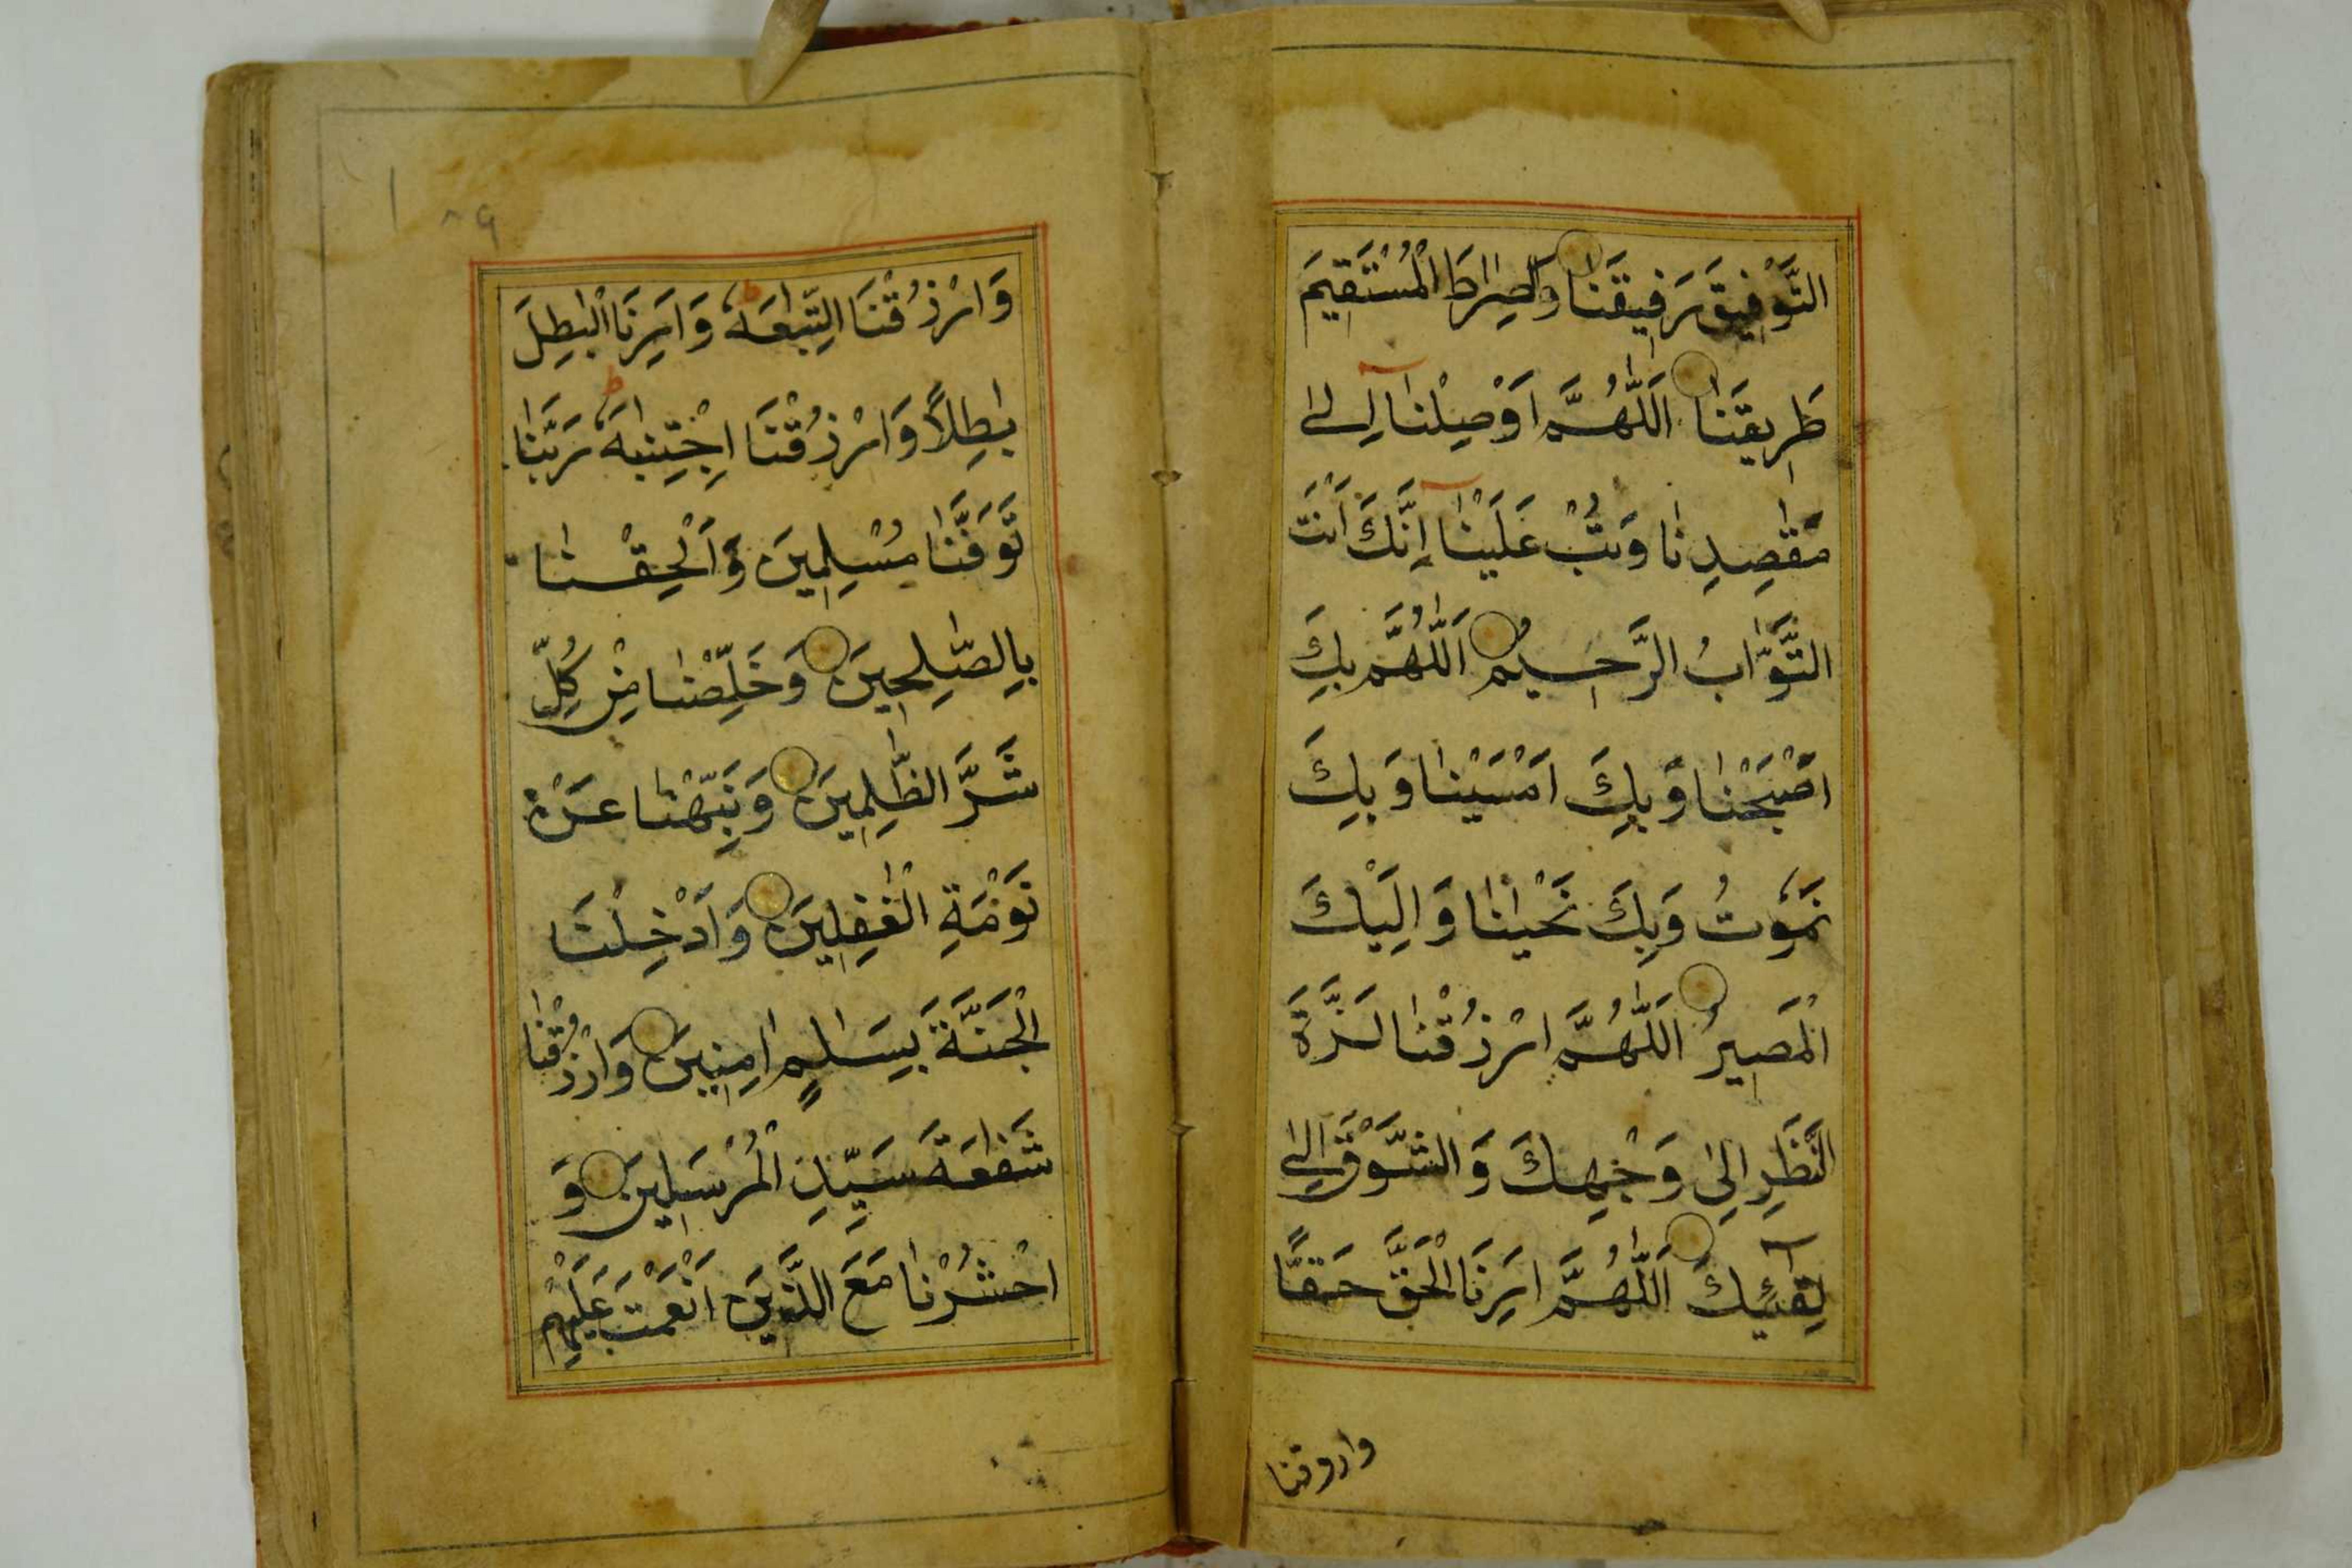 التَّوْفِيقَ رَفِيقَنَا وَالصِّرَاطَ الْمُسْتَقِيمَ
طَرِيقَنَا اَللّٰهُمَّ اَوْصِلْنَا اِلىٰ
مَقٰصِدِنَا وَتُبْ عَلَيْنَا اِنَّكَ اَنْتَ
التَّوَّابُ الرَّحِيمُ اَللّٰهُمَّ بِكَ
اَصْبَحْنَا وَبِكَ اَمْسَيْنَا وَبِكَ
نَمُوتُ وَبِكَ نَحْيٰنَا وَاِلَيْكَ
الْمَصِيرُ اَللّٰهُمَّ ارْزُقْنَا لَذَّةَ
النَّظَرِ اِلىٰ وَجْهِكَ وَالشَّوْقَ اِلىٰ
لِقَآئِكَ اَللّٰهُمَّ اَرِنَا الْحَقَّ حَقًّا
وارزقنا
٨٩
وَارْزُقْنَا اتِّبٰعَهُ وَاَرِنَا الْبٰطِلَ
بٰطِلًا وَارْزُقْنَا اجْتِنٰبَهُ رَبَّنَا
تَوَفَّنَا مُسْلِمِينَ وَاَلْحِقْنَا
بِالصّٰلِحِينَ وَخَلِّصْنَا مِنْ كُلِّ
شَرِّ الظّٰلِمِينَ وَنَبِّهْنَا عَنْ
نَوْمَةِ الْغٰفِلِينَ وَاَدْخِلْنَا
الْجَنَّةَ بِسَلٰمٍ اٰمِنِينَ وَارْزُقْنَا
شَفٰعَةَ سَيِّدِ الْمُرْسَلِينَ وَ
احْشُرْنَا مَعَ الَّذِينَ اَنْعَمْتَ عَلَيْهِمْ